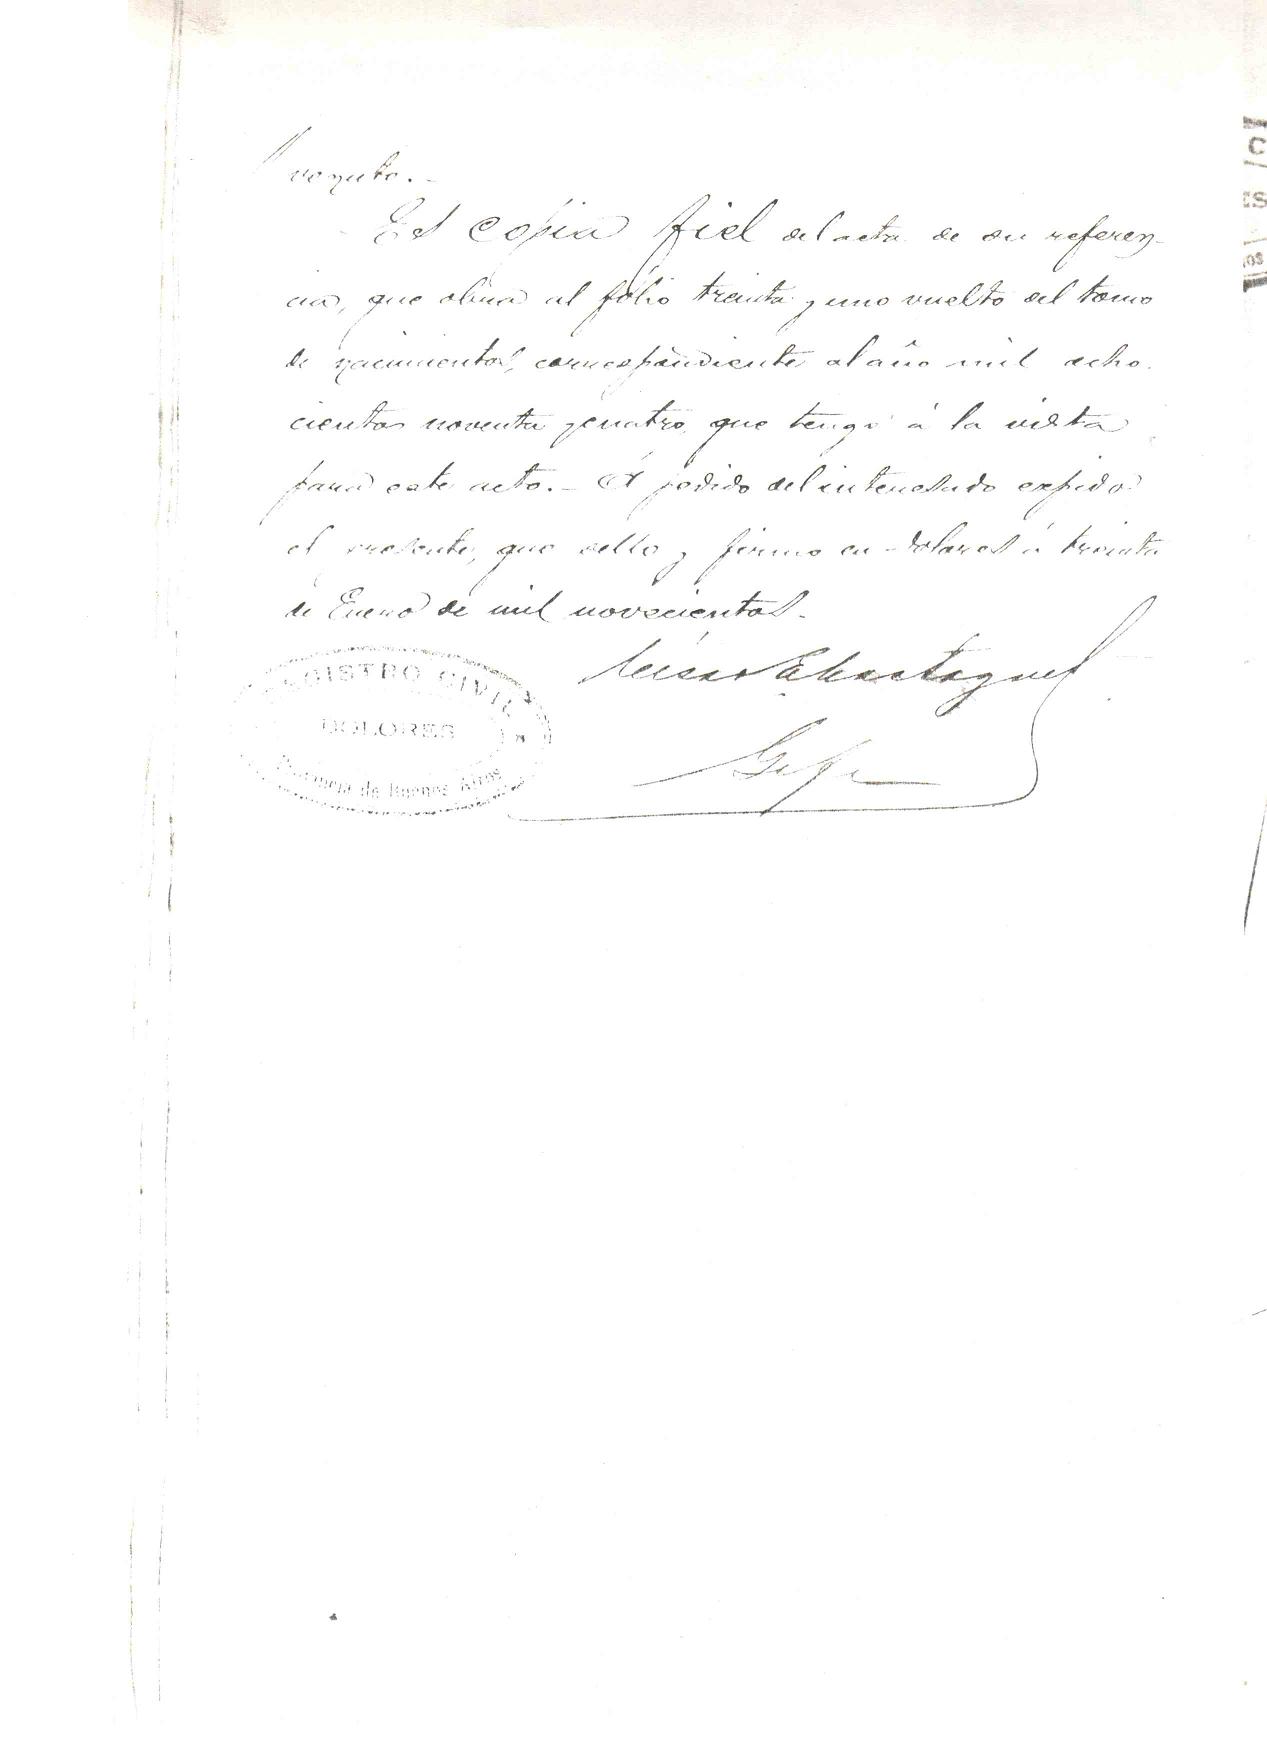 Es copia fiel del acta de su referen-
cia, que obra al fólio treinta y uno vuelto del tomo
de nacimientos, correspondiente al año mil ocho-
cientos noventa y cuatro, que tengo á la vista
para este acto.- A pedido del interesado expido
el presente, que sello y firmo en Dolores á treinta
de Enero de mil novecientos.-
Gefe
REGISTRO CIVIL
DOLORES
Provincia de Buenos Aires